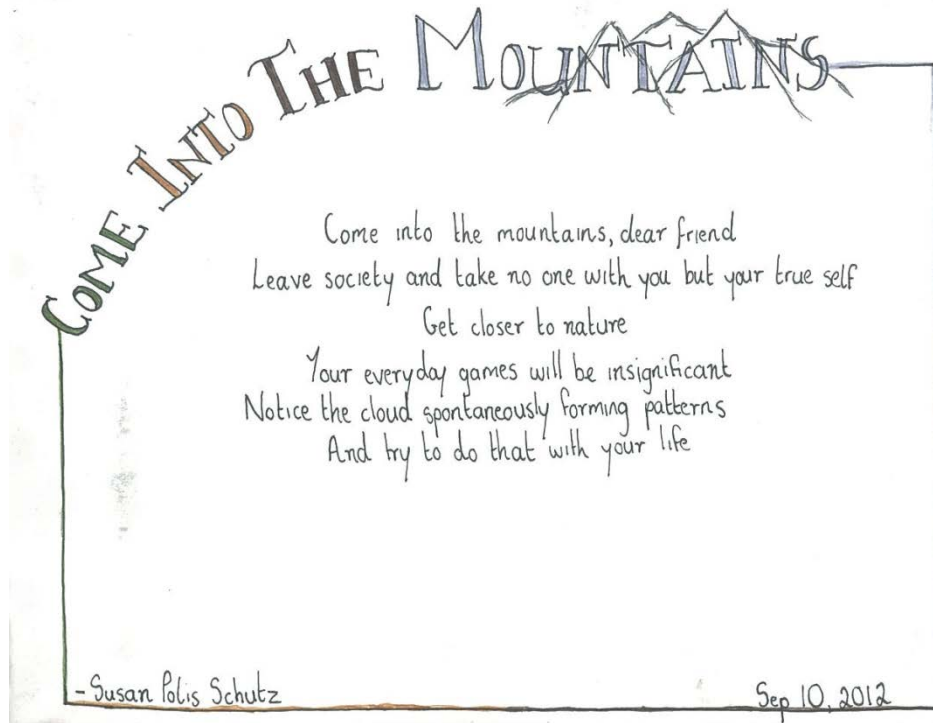 COME INTO THE MOUNTAINS
Come into the mountains, dear friend
Leave society and take no one with you but your true self
Get closer to nature
Your everyday games will be insignificant
Notice the cloud spontaneously forming patterns
And try to do that with your life
- Susan Polis Schutz
Sep 10, 2012